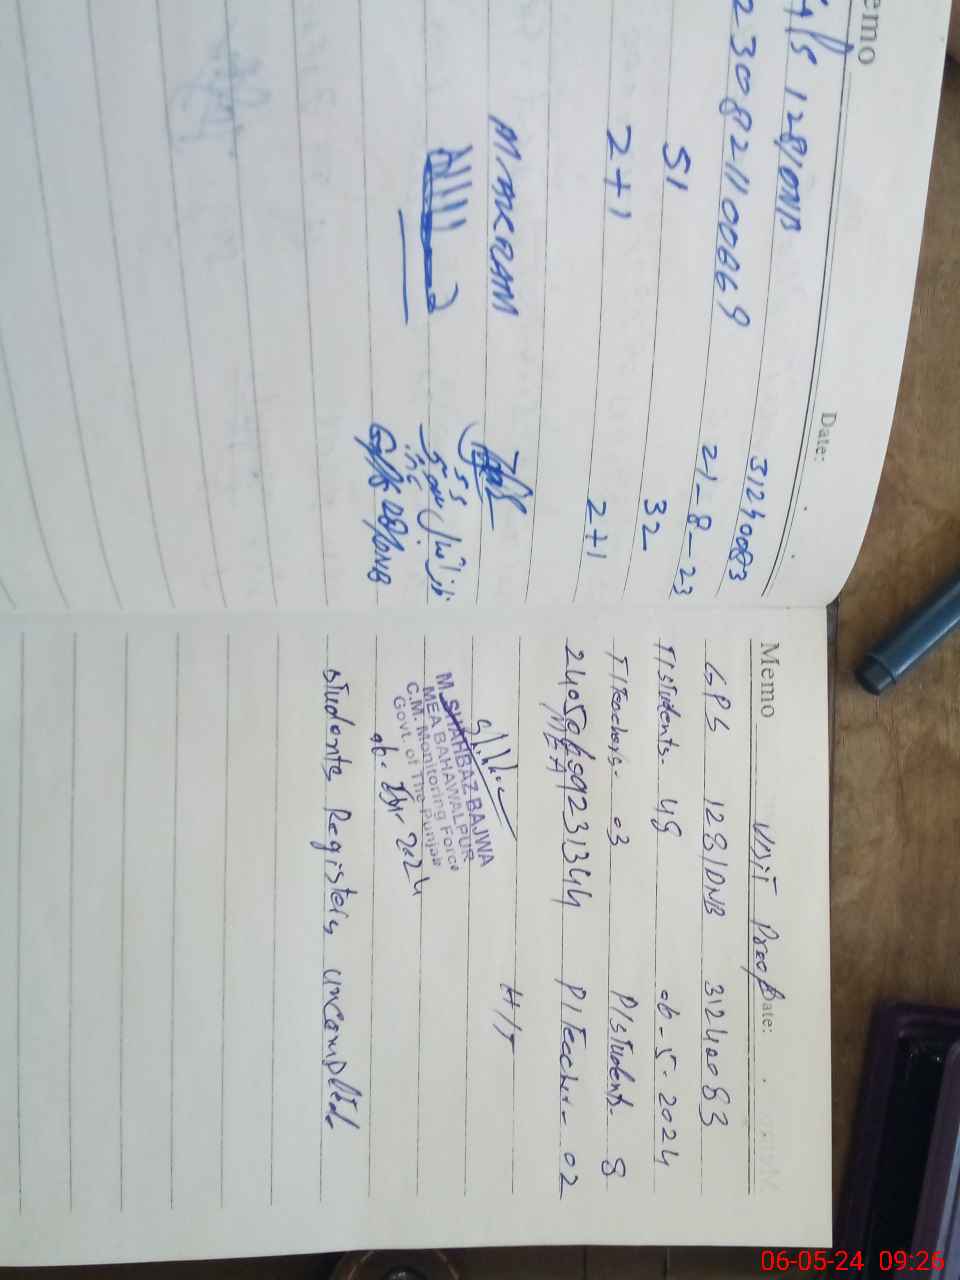 emo
Date:
128/DNB 31240083
230821100669 21-8-23
51 32
2+1 2+1
M-AKRAM
128/DNB
Memo Date:
Visit Proof
GPS 128/DNB 31240083
T/Students- 49 06-5-2024
T/Teachers- 03 P/Students- 8
P/Teacher- 02
(MEA)
H/T
M.SHAHBAZ BAJWA
MEA BAHAWALPUR
C.M. Monitoring Force
Govt. of The Punjab
Students Registers uncompleted
06-05-24 09:26